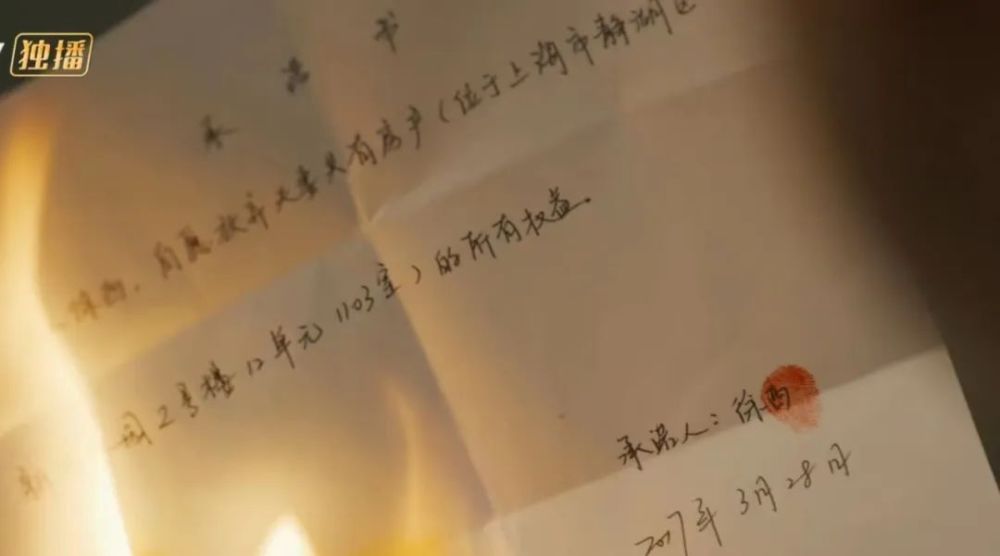 独播
承诺书
徐西,自愿放弃夫妻共有房产(位于上湖市静湖区
园2号楼12单元1103室)的所有权益.
承诺人:徐西
2017年3月28日